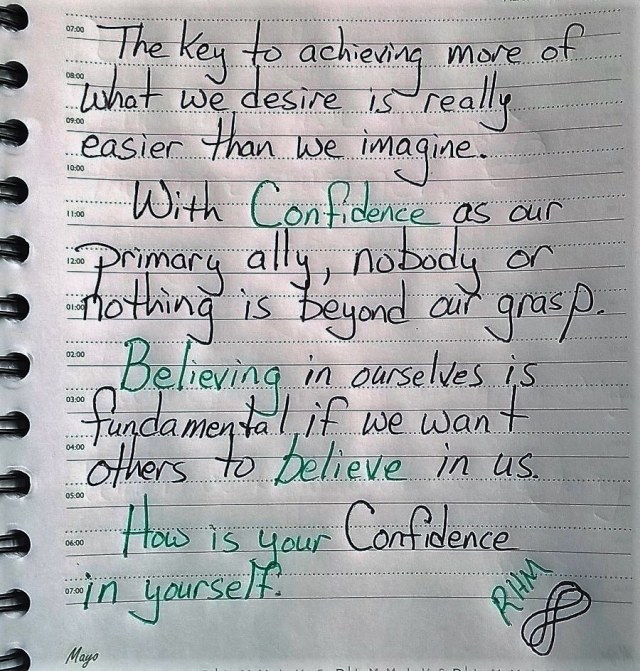 07:00
The Key to achieving more of
08:00
what we desire is really
09:00
easier than we imagine.
10:00
With Confidence as our
11:00
primary ally, nobody or
12:00
nothing is beyond our grasp.
01:00
Believing in ourselves is
02:00
fundamental if we want
03:00
others to believe in us.
04:00
05:00
How is your Confidence
06:00
in yourself.
07:00
RHM
Mayo